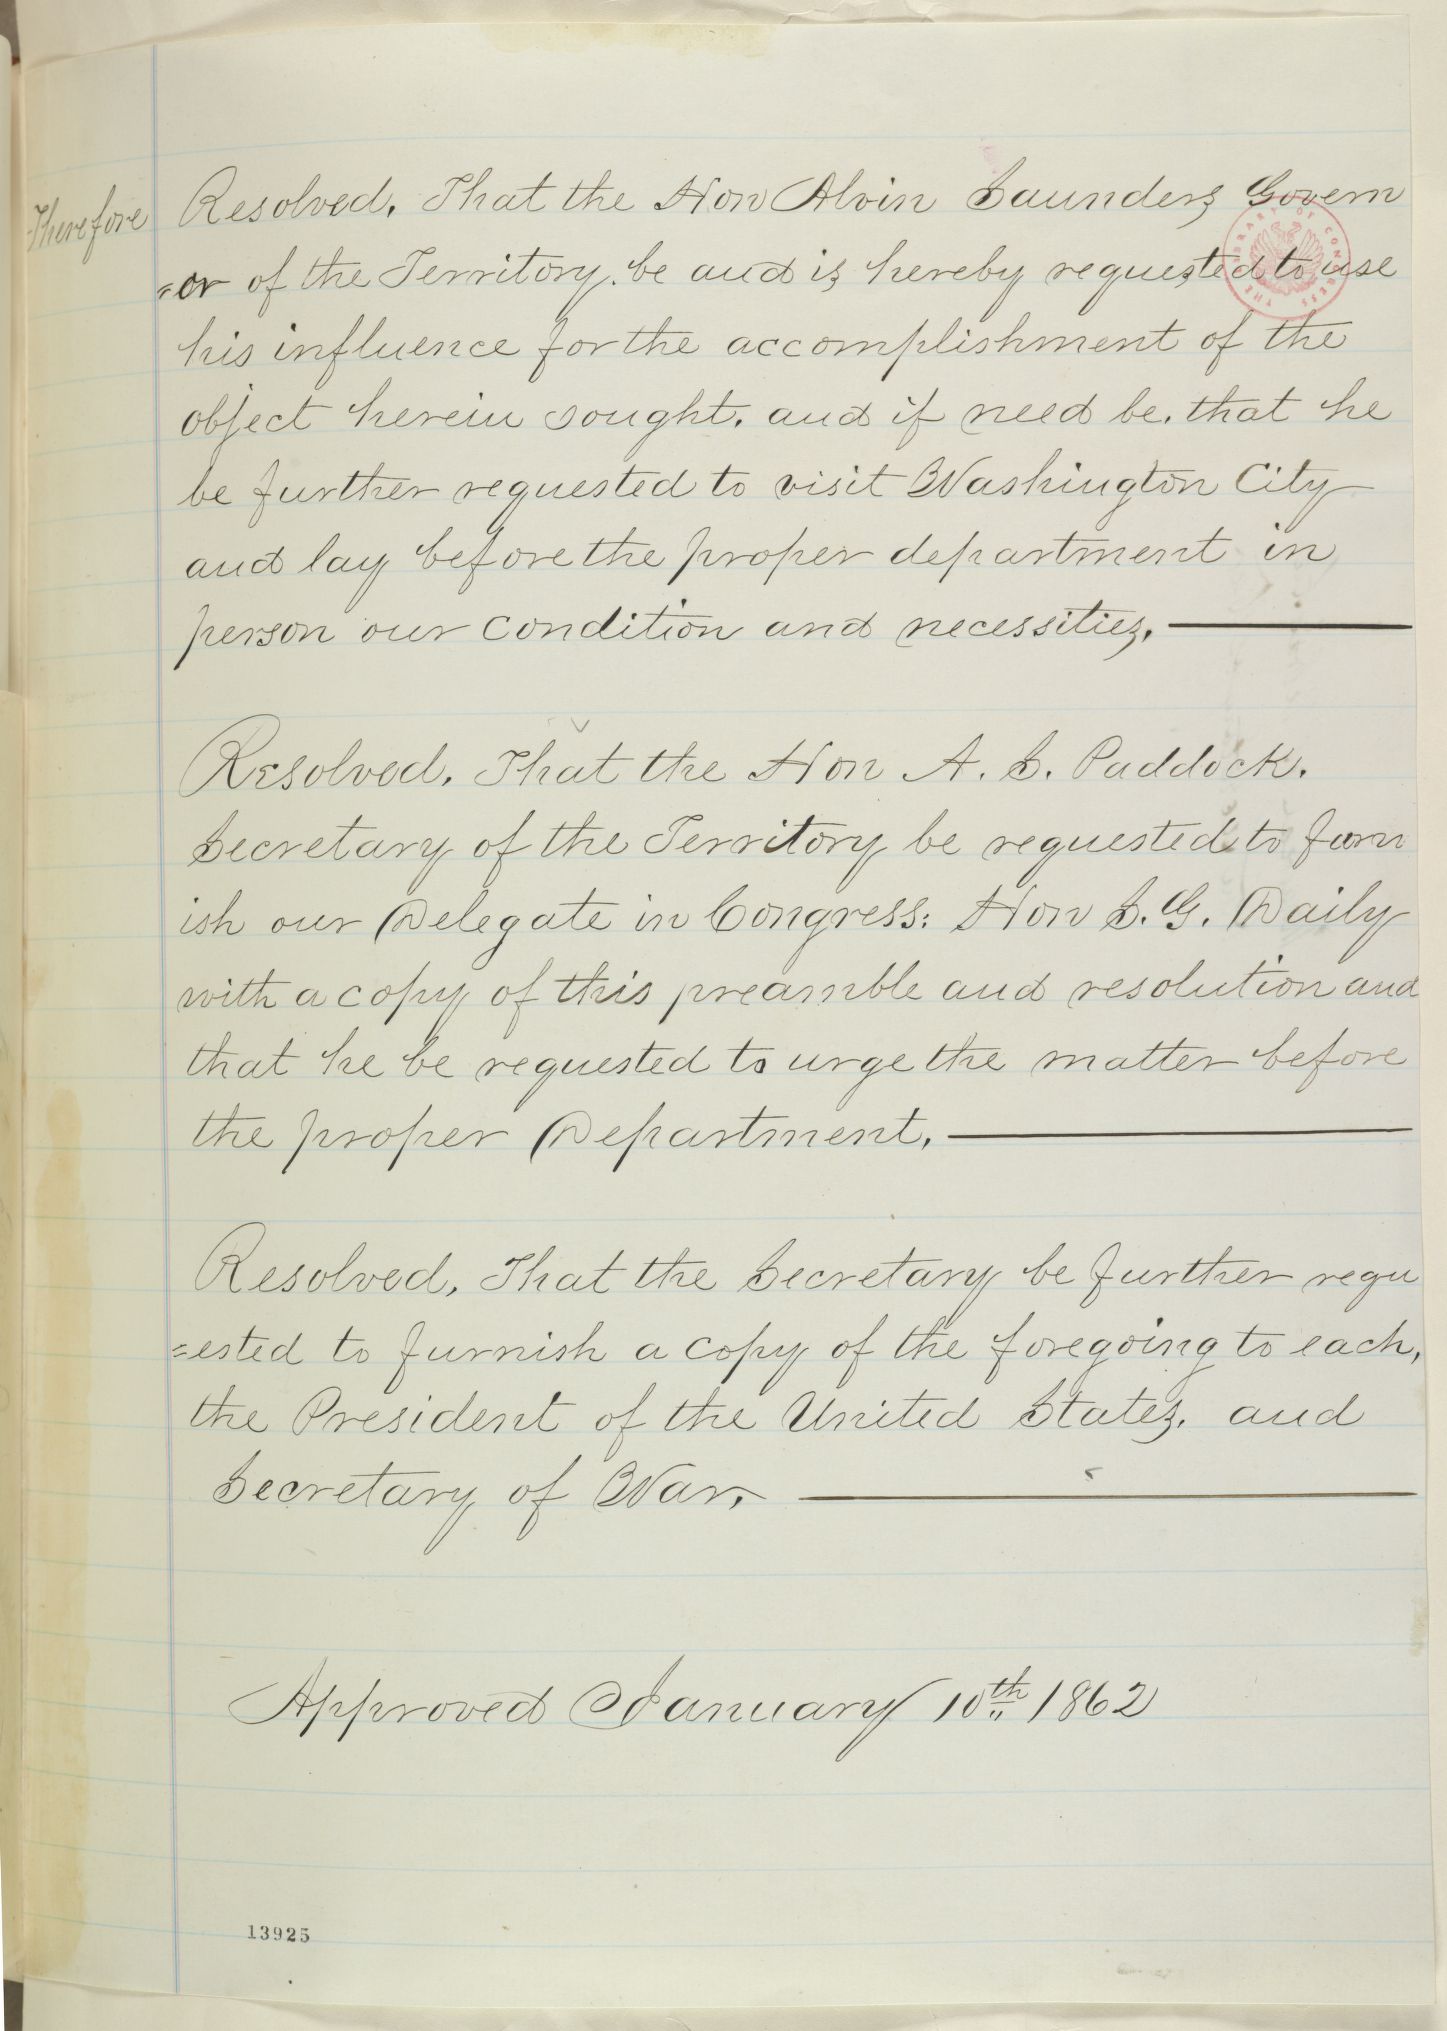 Therefore Resolved, That the Hon Alvin Saunders Govern
=or of the Territory. be and is hereby requested to use
his influence for the accomplishment of the
object herein sought. and if need be. that he
be further requested to visit Washington City
and lay before the proper department in
person our condition and necessities.
Resolved. That the Hon A. S. Paddock.
Secretary of the Territory be requested to furn
ish our Delegate in Congress: Hon S. G. Daily
with a copy of this preamble and resolution and
that he be requested to urge the matter before
the proper Department.
Resolved, That the Secretary be further requ
=ested to furnish a copy of the foregoing to each,
the President of the United States. and
Secretary of War.
Approved January 10th 1862
13925
THE LIBRARY OF CONGRESS